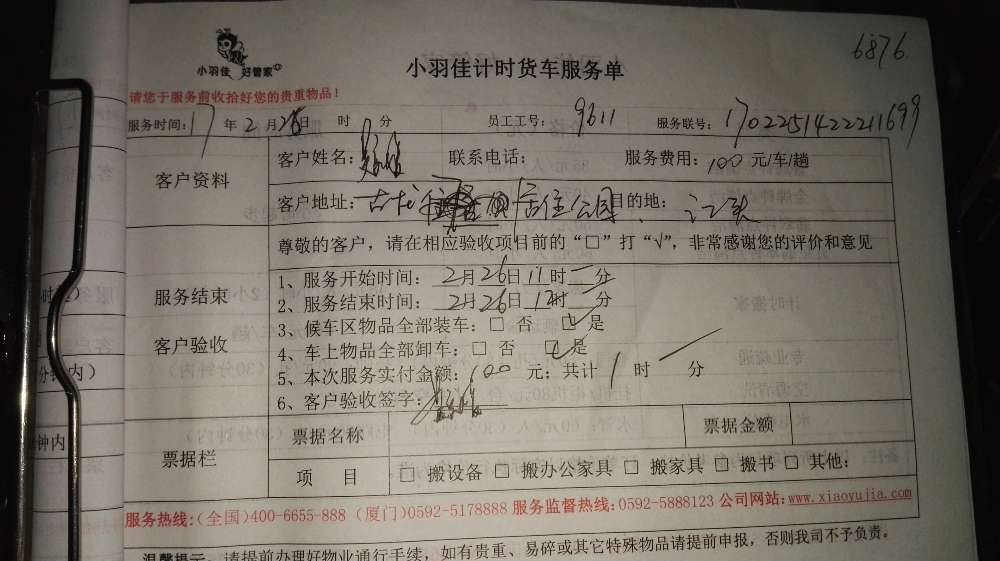 6876
小羽佳 好管家
小羽佳计时货车服务单
请您于服务前收拾好您的贵重物品！
服务时间：17年2月26日 时 分 员工工号：9611 服务联号：1702251422211699
客户资料
客户姓名： 联系电话： 服务费用：100元/车/趟
客户地址：古龙居住公园 目的地：江头
尊敬的客户，请在相应验收项目前的“□”打“√”，非常感谢您的评价和意见
服务结束
客户验收
1、服务开始时间：2月26日11时一分
2、服务结束时间：2月26日12时一分
3、候车区物品全部装车：□ 否 ☑是
4、车上物品全部卸车：□ 否 ☑是
5、本次服务实付金额：100 元；共计1时 分
6、客户验收签字：
票据栏
票据名称 票据金额
项 目 □ 搬设备 □ 搬办公家具 □ 搬家具 □ 搬书 □ 其他：
服务热线：(全国)400-6655-888 (厦门)0592-5178888 服务监督热线：0592-5888123 公司网站：www.xiaoyujia.com
温馨提示：请提前办理好物业通行手续，如有贵重、易碎或其它特殊物品请提前申报，否则我司不予负责。